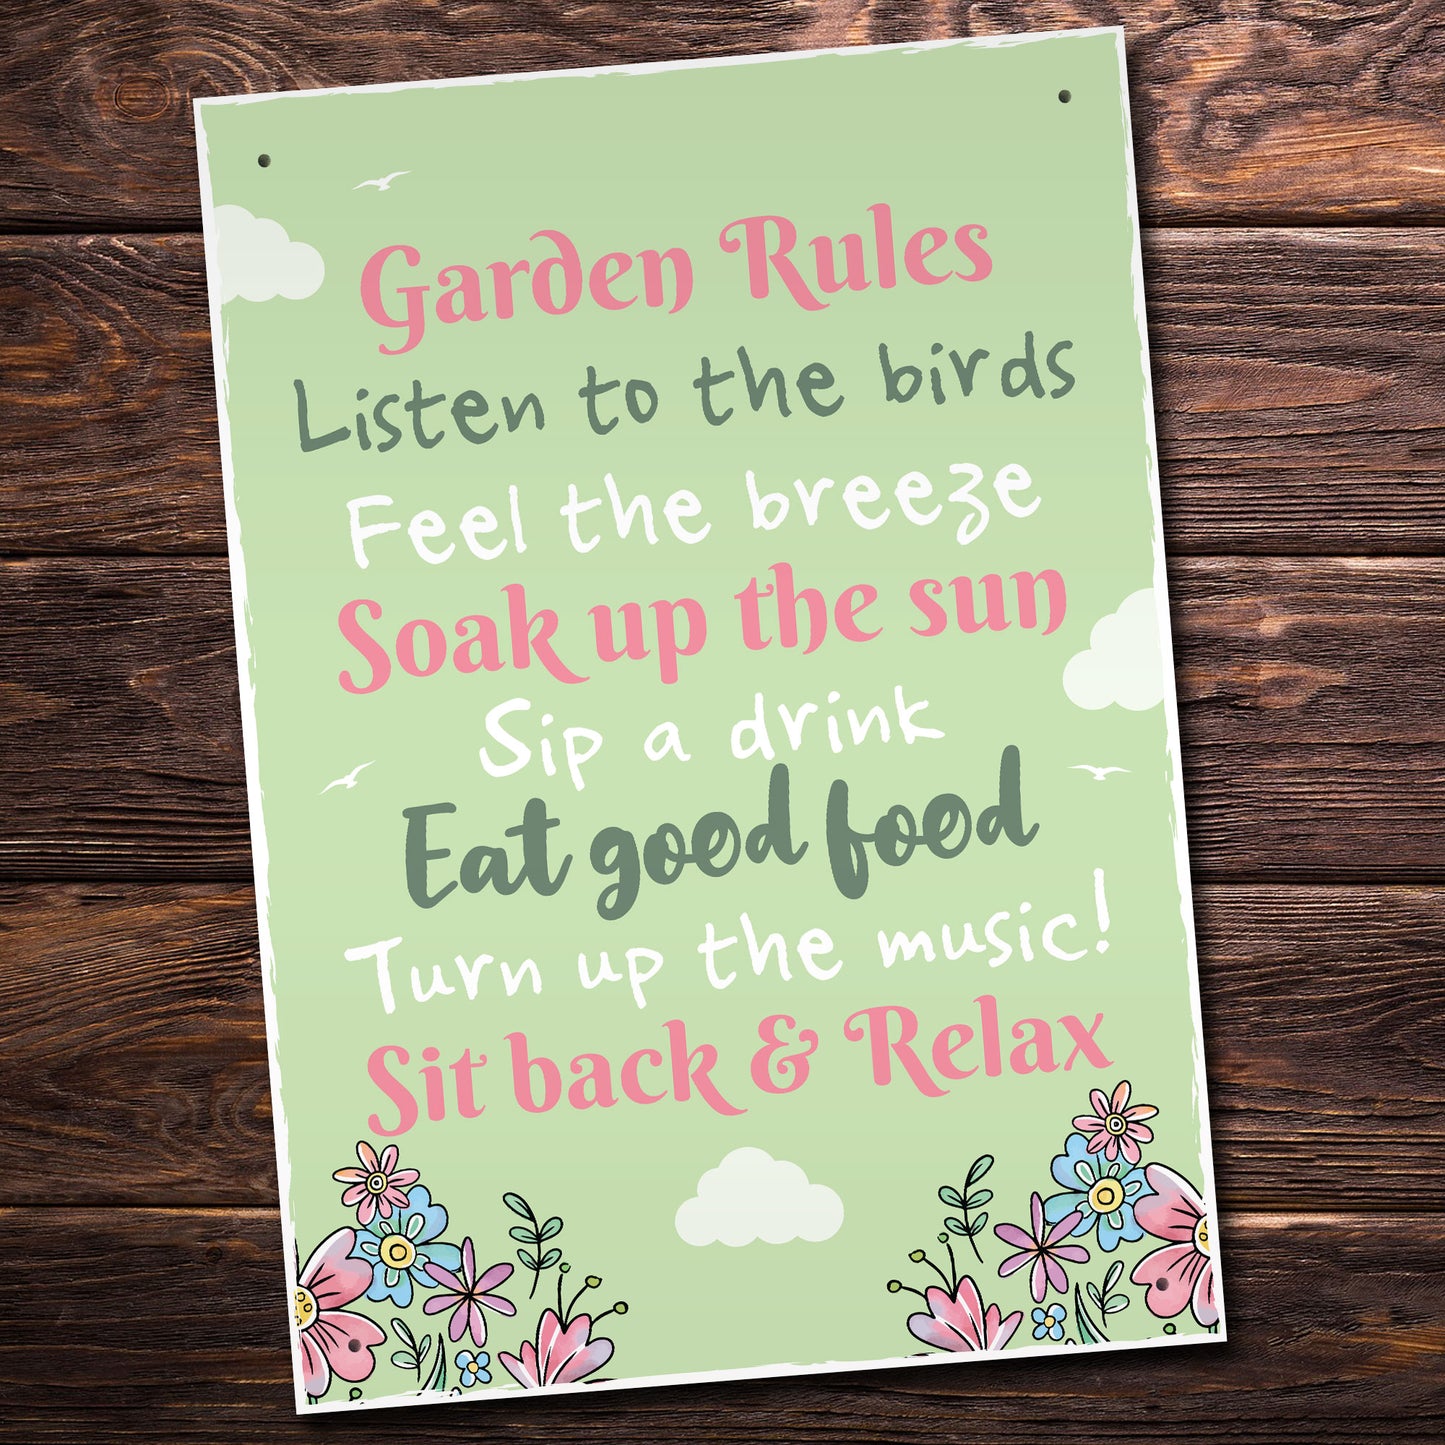 Garden Rules
Listen to the birds
Feel the breeze
Soak up the sun
Sip a drink
Eat good food
Turn up the music!
Sit back & Relax